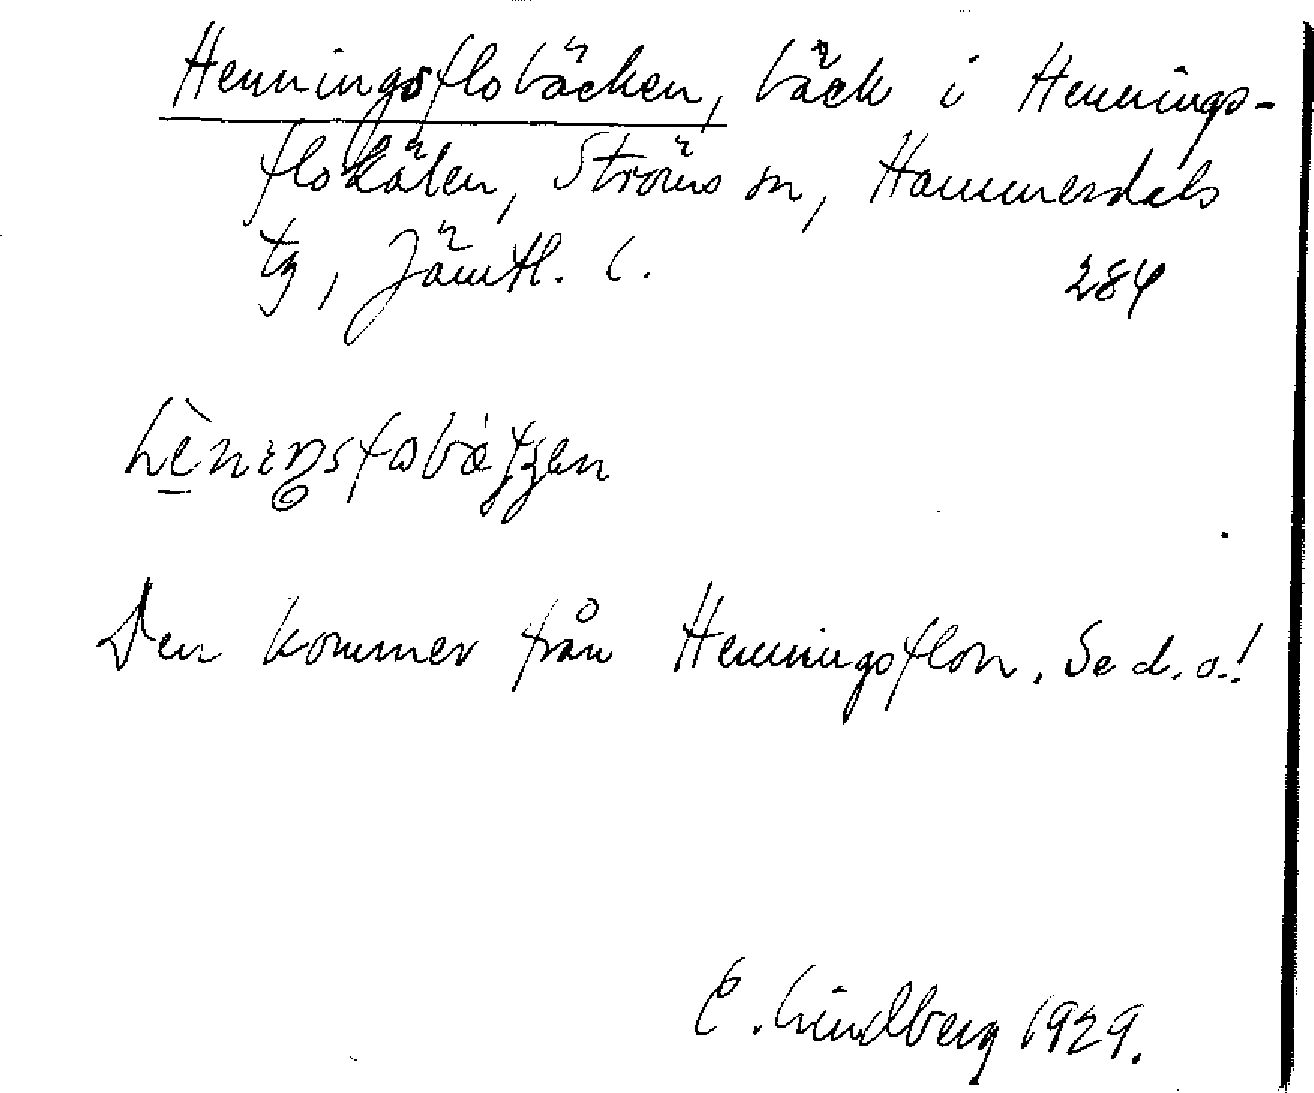 Henningsflobäcken, bäck i Hennings-
flokälen, Ströms sn, Hammerdals
tg, Jämtl. l. 284
Den kommer från Henningsflon. Se d. o.!
E. Lindberg 1929.